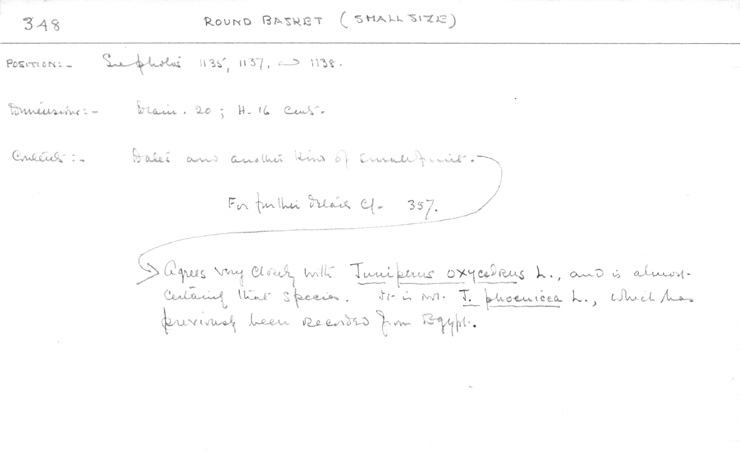 348 ROUND BASKET (SMALL SIZE)
POSITION:- See photos 1135, 1137, and 1138.
Dimensions:- Diam. 20; H. 16 cent.
Contents:- Dates and another kind of small fruit.
For further details cf. 357.
Agrees very closely with Juniperus oxycedrus L., and is almost
certainly that species. It is not J. phoenicea L., which has
previously been recorded from Egypt.